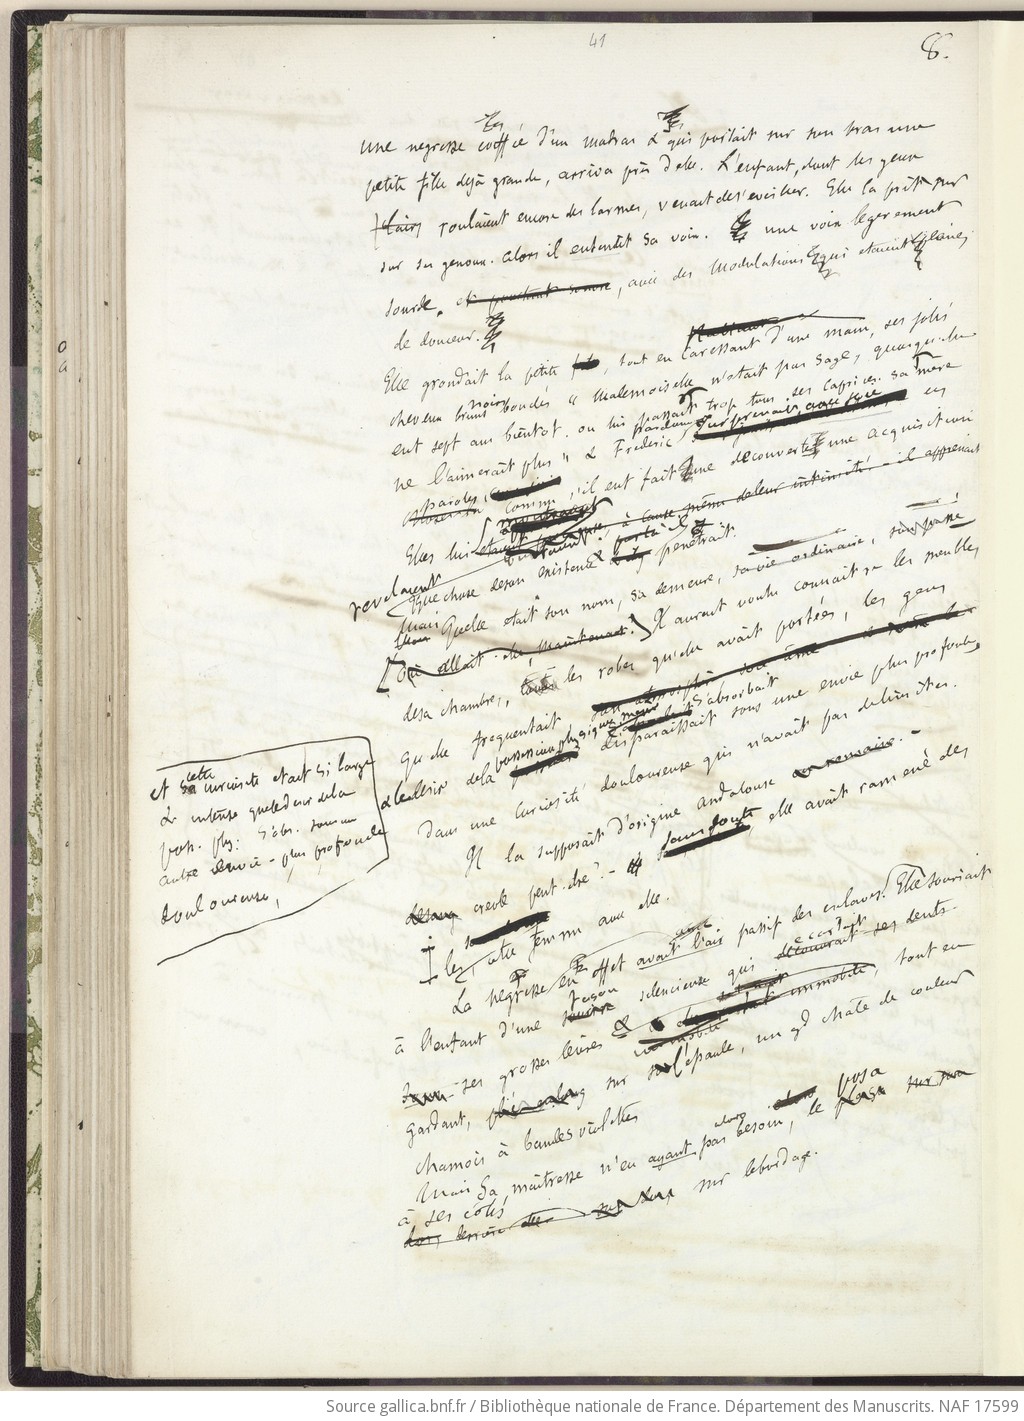 41
8.
une negresse coiffée d'un madras & qui portait sur son bras une
petite fille déjà grande, arriva près d'elle. L'enfant, dont les yeux
roulaient encore des larmes, venait de s'éveiller. Elle la prit sur
sur ses genoux. Alors il entendit sa voix. une voix legerement
sourde, et pourtant sonore, avec des modulations qui etaient pleines
de douceur.
Elle grondait la petite, tout en caressant d'une main, ses jolis
cheveux bruns noirs bouclés « Mademoiselle n'etait pas sage, quoiqu'elle
eut sept ans bientôt. on lui passait pardonnait trop tous ses caprices. sa mère
ne l'aimerait plus » & Frederic surprenait avec joie ces
paroles, comme s'il eut fait une decouverte une acquisition
Elles lui étaient à cause même de leur intimité - il apprenait
revelaient
quelque chose de son existence & penetrait.
Mais Quelle etait son nom, sa demeure, sa vie ordinaire, son passé
Où allait-elle, maintenant? Il aurait voulu connaitre les meubles
de sa chambre, toutes les robes qu'elle avait portées, les gens
qu'elle frequentait
& le desir de la possession physique même disparaissait s'absorbait sous une envie plus profonde,
dans une curiosité douloureuse qui n'avait pas de limites.
et sa cette curiosité etait si large
& intense que le desir de la
poss. phy: s'abs. sous une
autre envie - plus profonde
douloureuse,
Il la supposait d'origine andalouse ou romaine. -
de sang creole peut-être? - sans doute, elle avait ramené des
Iles, cette femme avec elle.
La negresse en effet avait l'air passif des esclaves. Elle souriait
à l'enfant d'une façon silencieuse qui decouvrait ecartait ses dents
sous ses grosses lèvres & immobile, tout en
gardant, plié en long sur l'épaule, un gd châle de couleur
chamois à bandes violettes
Mais Sa maîtresse n'en ayant pas alors besoin, le posa plaça sur son
à ses cotés
derrière elle sur le bordage.
Source gallica.bnf.fr / Bibliothèque nationale de France. Département des Manuscrits. NAF 17599